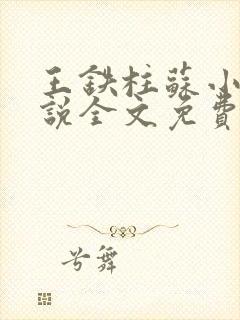 王鉄柱蘇小
説全文免費
兮舞